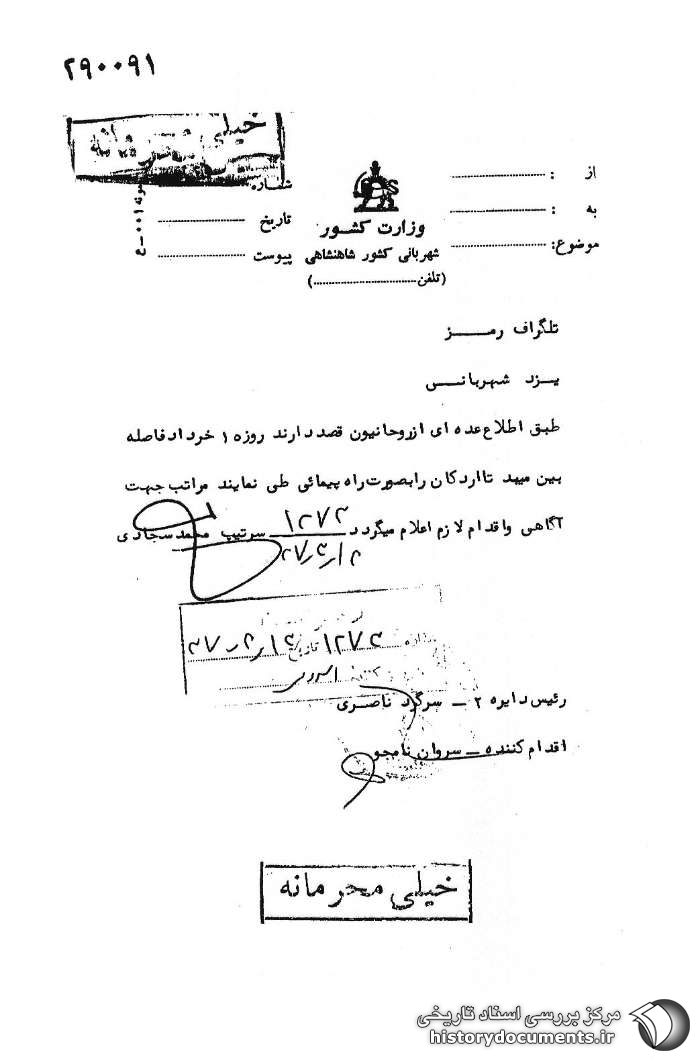 ۲۹۰۰۹۱
خیلی محرمانه
از :
به :
موضوع:
وزارت کشور
شهربانی کشور شاهنشاهی
(تلفن)
شماره
تاریخ
پیوست
تلگراف رمز
یزد شهربانی
طبق اطلاع عده ای از روحانیون قصد دارند روزه ۱ خرداد فاصله
بین میبد تا اردکان را بصورت راه پیمائی طی نمایند مراتب جهت
آگاهی و اقدام لازم اعلام میگردد سرتیپ محمد سجادی
۱۲۷۲
شماره ۱۲۷۲ تاریخ
رئیس دایره ۲ ــ سرگرد ناصری
اقدام کننده ــ سروان نامجو
خیلی محرمانه
مرکز بررسی اسناد تاریخی
historydocuments.ir